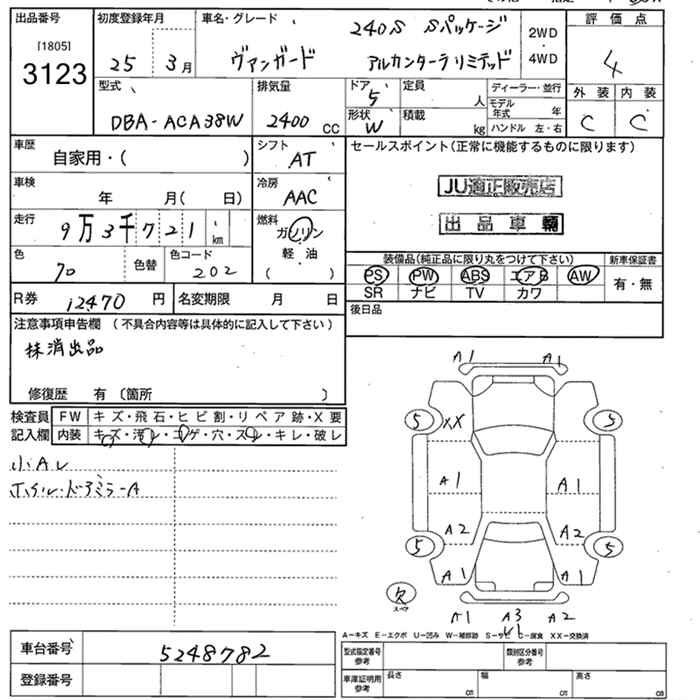 出品番号 初度登録年月 車名・グレード 評価点
[1805]
3123
25 3月 ヴァンガード
240S Sパッケージ
アルカンターラリミテッド
2WD
・
4WD
4
型式 排気量 ドア 定員 ディーラー・並行 外装 内装
DBA-ACA38W 2400 CC 5 人
モデル年式 年
形状 積載
W kg ハンドル 左・右
C C
車歴 シフト セールスポイント(正常に機能するものに限ります)
自家用・( ) AT
JU適正販売店
出品車輌
車検 冷房
年 月( ) AAC
走行 燃料
9万3千721 km ガソリン
軽・油
( )
色 色替 色コード
70 202
装備品(純正品に限り丸をつけて下さい) 新車保証書
PS PW ABS エアB AW 有・無
SR ナビ TV カワ
R券 12470 円 名変期限 月 日
後日品
注意事項申告欄 (不具合内容等は具体的に記入して下さい)
抹消出品
修復歴 有 (箇所 )
検査員 FW キズ・飛石・ヒビ割・リペア跡・X要
記入欄 内装 キズ・汚レ・コゲ・穴・スレ・キレ・破レ
小AL
ホイル・ドアミラーA
A1 A1
5 XX 5
A1 A1
A2 A2
5 5
A1 A1
欠
スペア
A1 A3 A2
U1
A−キズ E−エクボ U−凹み W−補修跡 S−サビ C−腐食 XX−交換済
車台番号 5248782
登録番号
型式指定番号 参考 類別区分番号 参考
車庫証明用 参考 長さ cm 幅 cm 高さ cm